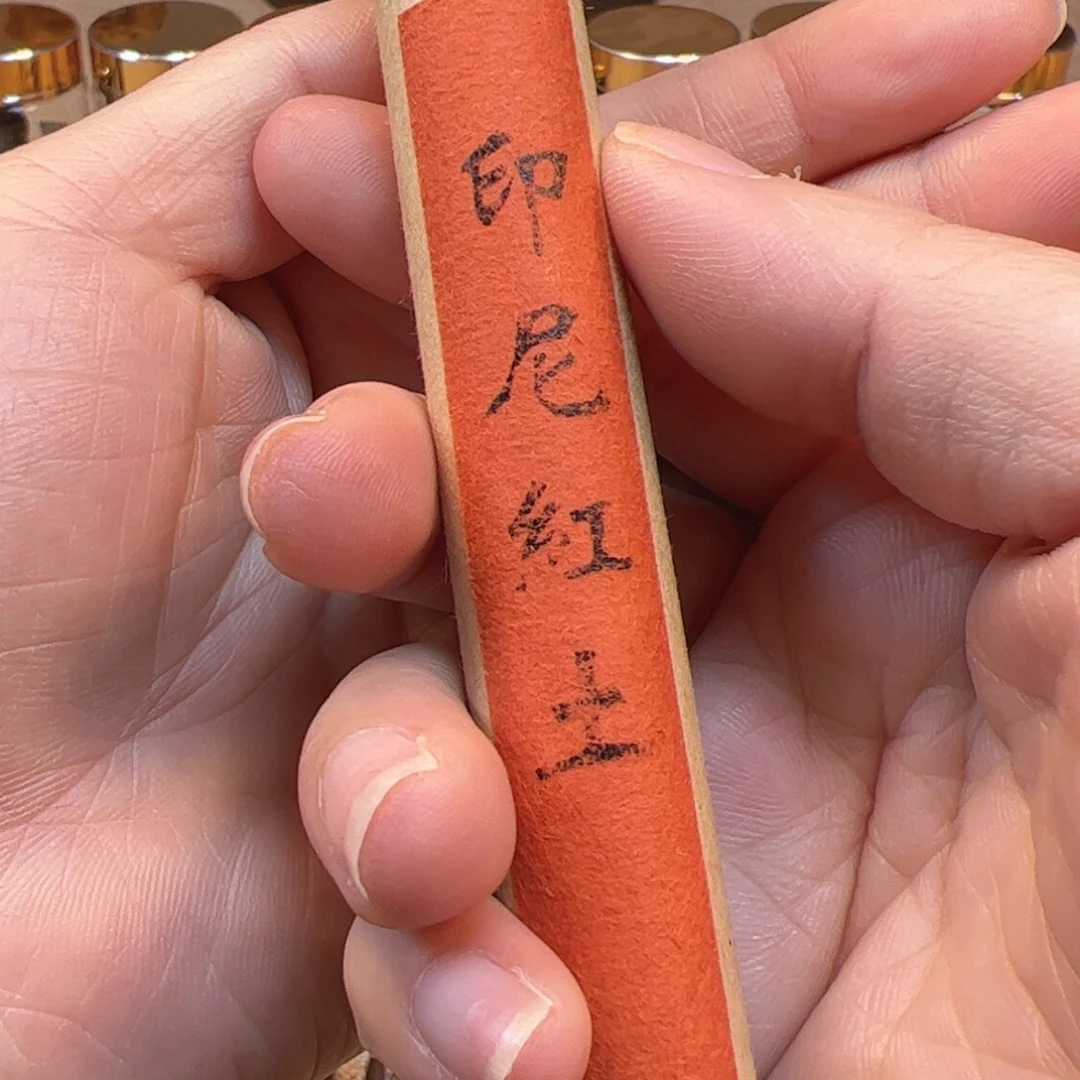 印尼紅土